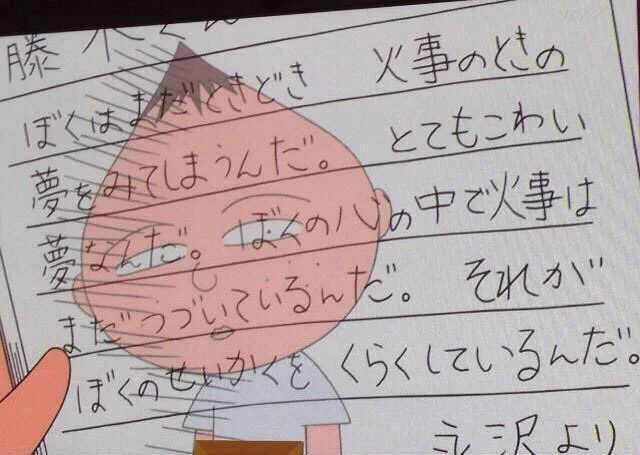 藤木くん
ぼくはまだときどき　火事のときの
とてもこわい
夢をみてしまうんだ。
夢なんだ。ぼくの心の中で火事は
まだつづいているんだ。それが
ぼくのせいかくを くらくしているんだ。
永沢より